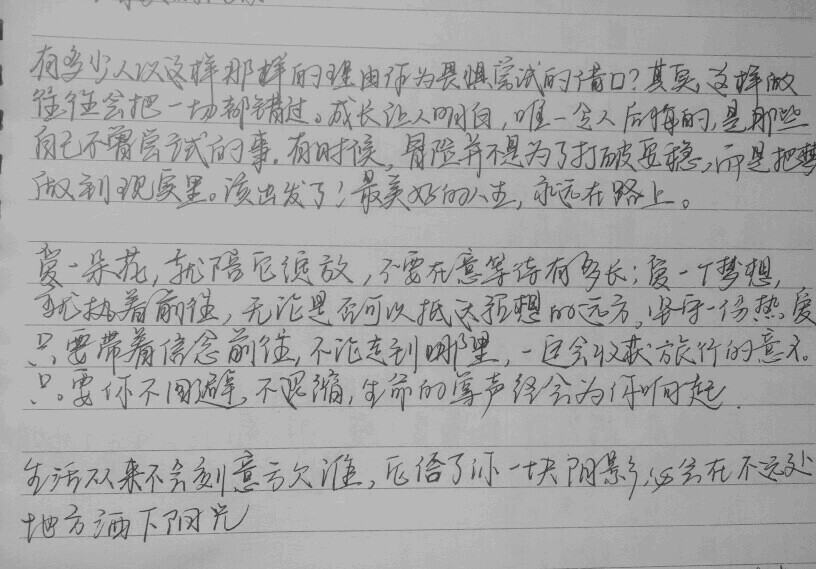 有多少人以这样那样的理由作为畏惧尝试的借口？其实，这样做
往往会把一切都错过。成长让人明白，唯一令人后悔的，是那些
自己不曾尝试的事。有时候，冒险并不是为了打破安稳，而是把梦
做到现实里。该出发了！最美好的人生，永远在路上。
爱一朵花，就陪它绽放，不要在意等待有多长；爱一个梦想，
就执着前往，无论是否可以抵达预想的远方。坚守一份热爱
只要带着信念前往，不论走到哪里，一定会收获旅行的意义。
只要你不回避，不退缩，生命的掌声终会为你响起.
生活从来不会刻意亏欠谁，它给了你一块阴影，必会在不远处
地方洒下阳光